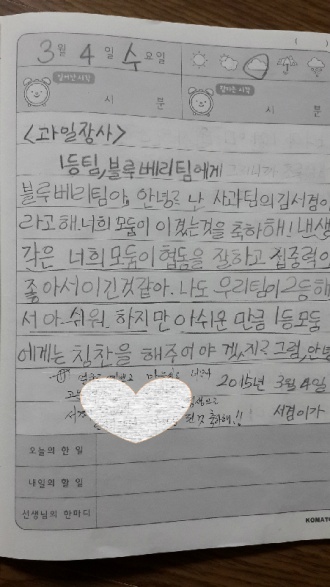 3월 4일 수요일
일어난 시각
시 분
잠자는 시각
시 분
<과일장사>
1등팀,블루베리팀에게
블루베리팀아, 안녕? 난 사과팀의 김서겸이
라고해.너희모둠이 이겼는것을 축하해! 내생
각은 너희모둠이 협동을 잘하고 집중력이
좋아서이긴것같아. 나도 우리팀이2등해
서 아쉬워. 하지만 아쉬운 만큼 1등모둠
에게는 칭찬을 해주어야 겠지? 그럼,안녕
2015년 3월 4일
축하해!!
서겸이가
오늘의 한 일
내일의 할 일
선생님의 한마디